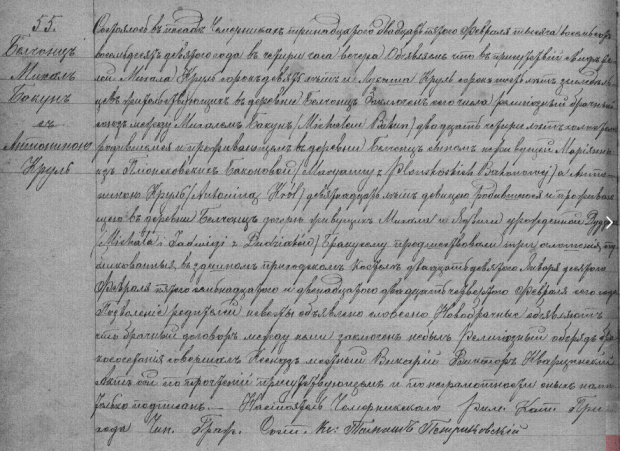 55.
Болчонц
Михалъ
Бакунъ
съ
Антониною
Круль
Состоялось въ посадѣ Чемерникахъ тринадцатаго двадцать пятаго Февраля тысяча восемьсотъ
восемьдесятъ девятаго года въ четыре часа вечера Объявляемъ что въ присутствіи свидѣте
лей Михала Круль сорокъ девять лѣтъ и Лукаша Круль сорокъ лѣтъ земледѣль
цевъ жительствующихъ въ деревни Болчонцъ Заключенъ сего числа религіозный брачный
союзъ между Михаломъ Бакунъ (Michałem Bakun) двадцать четыре лѣтъ холостымъ
родившимся и проживающимъ въ деревни Болчонцъ сыномъ Маріанны
изъ Плонсковскихъ Баконовой (Maryanny z Płonskowskich Bakonowy) а Анто
ниною Круль (Antonina Król) девятнадцать лѣтъ девицею родившеюся и прожива
щею въ деревни Болчонцъ дочерью живущихъ Михала и Ядвиги урожденной
(Michała i Jadwigi z Dudziaków) Браку сему предшествовали три оглашенія, пу
бликованныя, въ здѣшнемъ приходскомъ Костелѣ двадцать девятаго Января десятаго
Февраля пятаго семнадцатаго и двенадцатаго двадцать четвертаго Февраля сего года
Позволеніе родителей невесты объявлено словесно Новобрачные объявляютъ
что брачный договоръ между ними заключенъ небылъ Религіозный обрядъ бра
косочетанія совершалъ Ксендзъ местный Викарій Викторъ
Актъ сей по прочтеніи присутствующимъ и по неграмотности оныхъ нами
только подписанъ. — Настоятель Чемерникскаго Римо Кат. При
хода Чин. Граж. Сост. Кс: